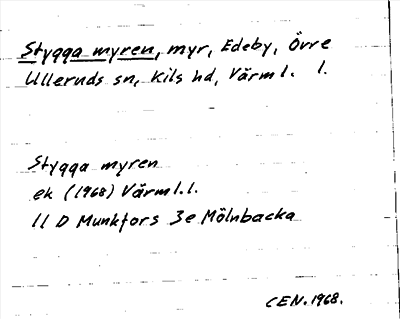 Stygga myren, myr, Edeby, Övre
Ulleruds sn, Kils hd, Värml. l.
Stygga myren
ek (1968) Värml.l.
11 D Munkfors 3e Mölnbacka
CEN. 1968.